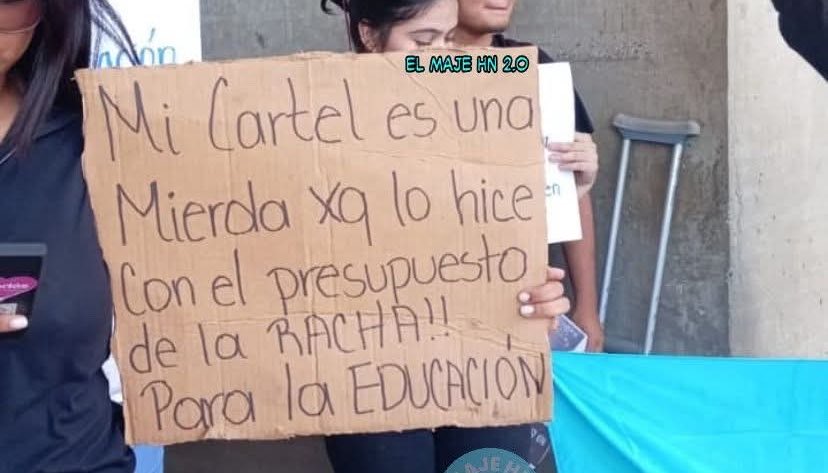 EL MAJE HN 2.0
Mi Cartel es una
Mierda xq lo hice
Con el presupuesto
de la RACHA!!
Para la EDUCACIÓN
en